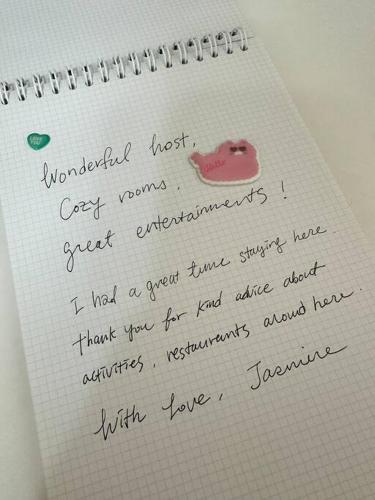 Wonderful host,
Cozy rooms,
great entertainments!
I had a great time staying here.
thank you for kind advice about
activities, restaurants around here.
With Love, Jasmine
Hello